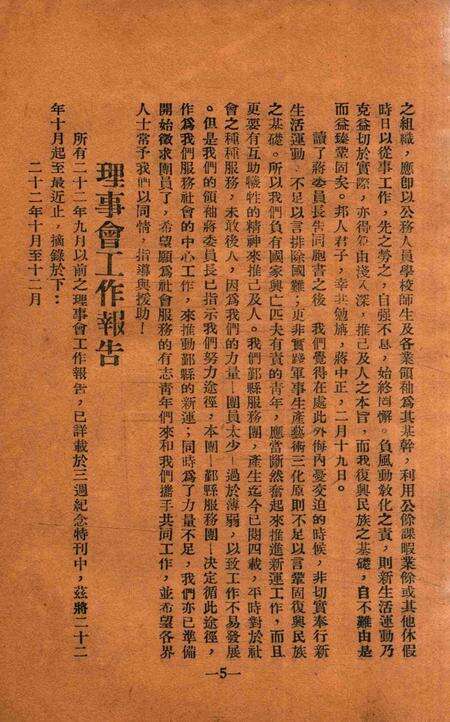 之組織，應卽以公務人員學校師生及各業領袖爲其基幹，利用公餘課暇業餘或其他休假
時日以從事工作，先之勞之，自强不息，始終罔懈。負風動敎化之責，則新生活運動乃
克益切於實際，亦得藉由淺入深，推己及人之本旨，而我復興民族之基礎，自不難由是
而益臻鞏固矣。邦人君子，幸共勉旃，蔣中正，二月十九日。
讀了蔣委員長告同胞書之後，我們覺得在處此外侮內憂交迫的時候，非切實奉行新
生活運動，不足以言排除國難；更非實踐軍事生產藝術三化原則不足以言鞏固復興民族
之基礎。所以我們負有國家興亡匹夫有責的青年，應當斷然奮起來推進新運工作，而且
更要有互助犧牲的精神來推己及人。我們鄞縣服務團，產生迄今已閱四載，平時對於社
會之種種服務，未敢後人，因爲我們的力量—團員太少—過於薄弱，以致工作不易發展
。但是我們的領袖蔣委員長已指示我們努力途徑，本團—鄞縣服務團—決定循此途徑，
作爲我們服務社會的中心工作，來推動鄞縣的新運；同時爲了力量不足，我們亦已準備
開始徵求團員了，希望願爲社會服務的有志青年們來和我們攜手共同工作，並希望各界
人士常予我們以同情，指導與援助！
理事會工作報告
所有二十二年九月以前之理事會工作報告，已詳載於三週紀念特刊中，茲將二十二
年十月起至最近止，摘錄於下：
二十二年十月至十二月
—5—